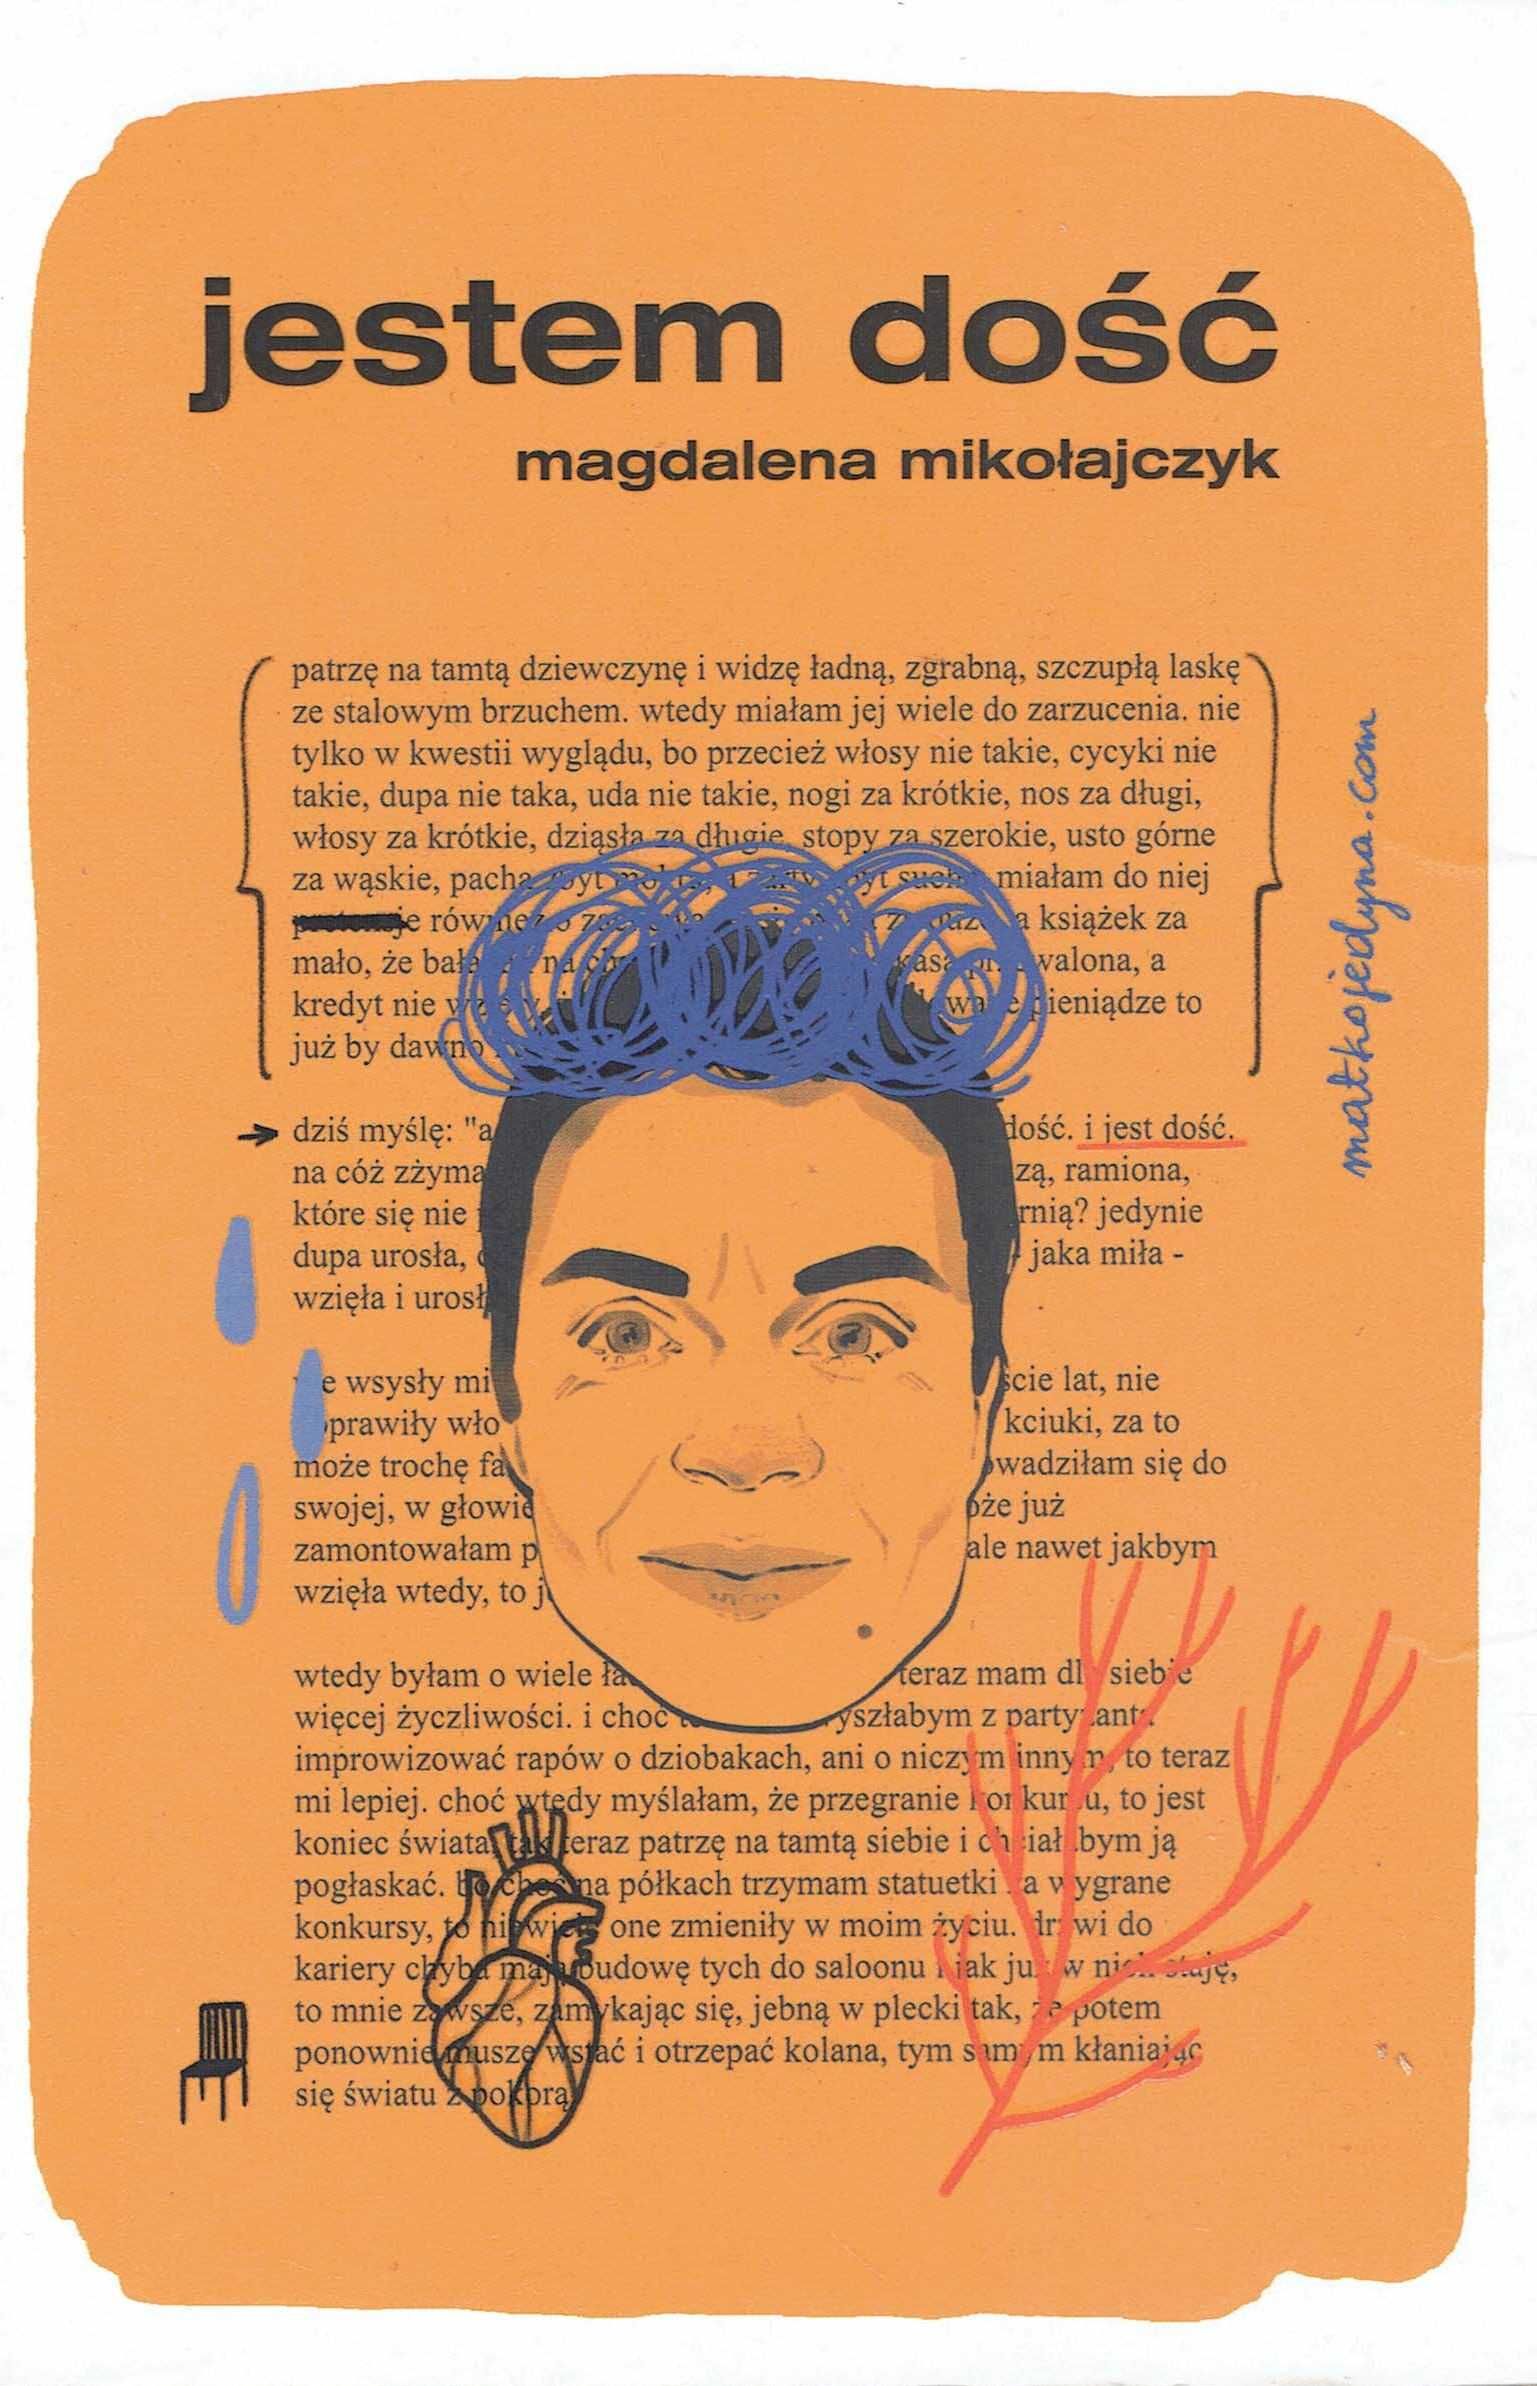 jestem dość
magdalena mikołajczyk
patrzę na tamtą dziewczynę i widzę ładną, zgrabną, szczupłą laskę
ze stalowym brzuchem. wtedy miałam jej wiele do zarzucenia. nie
tylko w kwestii wyglądu, bo przecież włosy nie takie, cycyki nie
takie, dupa nie taka, uda nie takie, nogi za krótkie, nos za długi,
włosy za krótkie, dziąsła za długie, stopy za szerokie, usto górne
za wąskie, pacha zbyt mokra, a żarty zbyt suche. miałam do niej
pretensje również o książek za
mało, że na kasa przewalona, a
kredyt nie pieniądze to
już by dawno
dziś myślę: "a dość. i jest dość.
na cóż zżyma zą, ramiona,
które się nie rnią? jedynie
dupa urosła, jaka miła -
wzięła i urosł
nie wsysły mi ście lat, nie
oprawiły wło kciuki, za to
może trochę fa wadziłam się do
swojej, w głowie oże już
zamontowałam p ale nawet jakbym
wzięła wtedy, to j
wtedy byłam o wiele ła teraz mam dla siebie
więcej życzliwości. i choć yszłabym z partyzanta
improwizować rapów o dziobakach, ani o niczym innym, to teraz
mi lepiej. choć wtedy myślałam, że przegranie konkursu, to jest
koniec świata, tak teraz patrzę na tamtą siebie i chciałabym ją
pogłaskać. bo choć na półkach trzymam statuetki za wygrane
konkursy, to niewiele one zmieniły w moim życiu. drzwi do
kariery chyba mają budowę tych do saloonu i jak już w nich staję,
to mnie zawsze, zamykając się, jebną w plecki tak, że potem
ponownie muszę wstać i otrzepać kolana, tym samym kłaniając
się światu z pokorą
matkojedyna.com